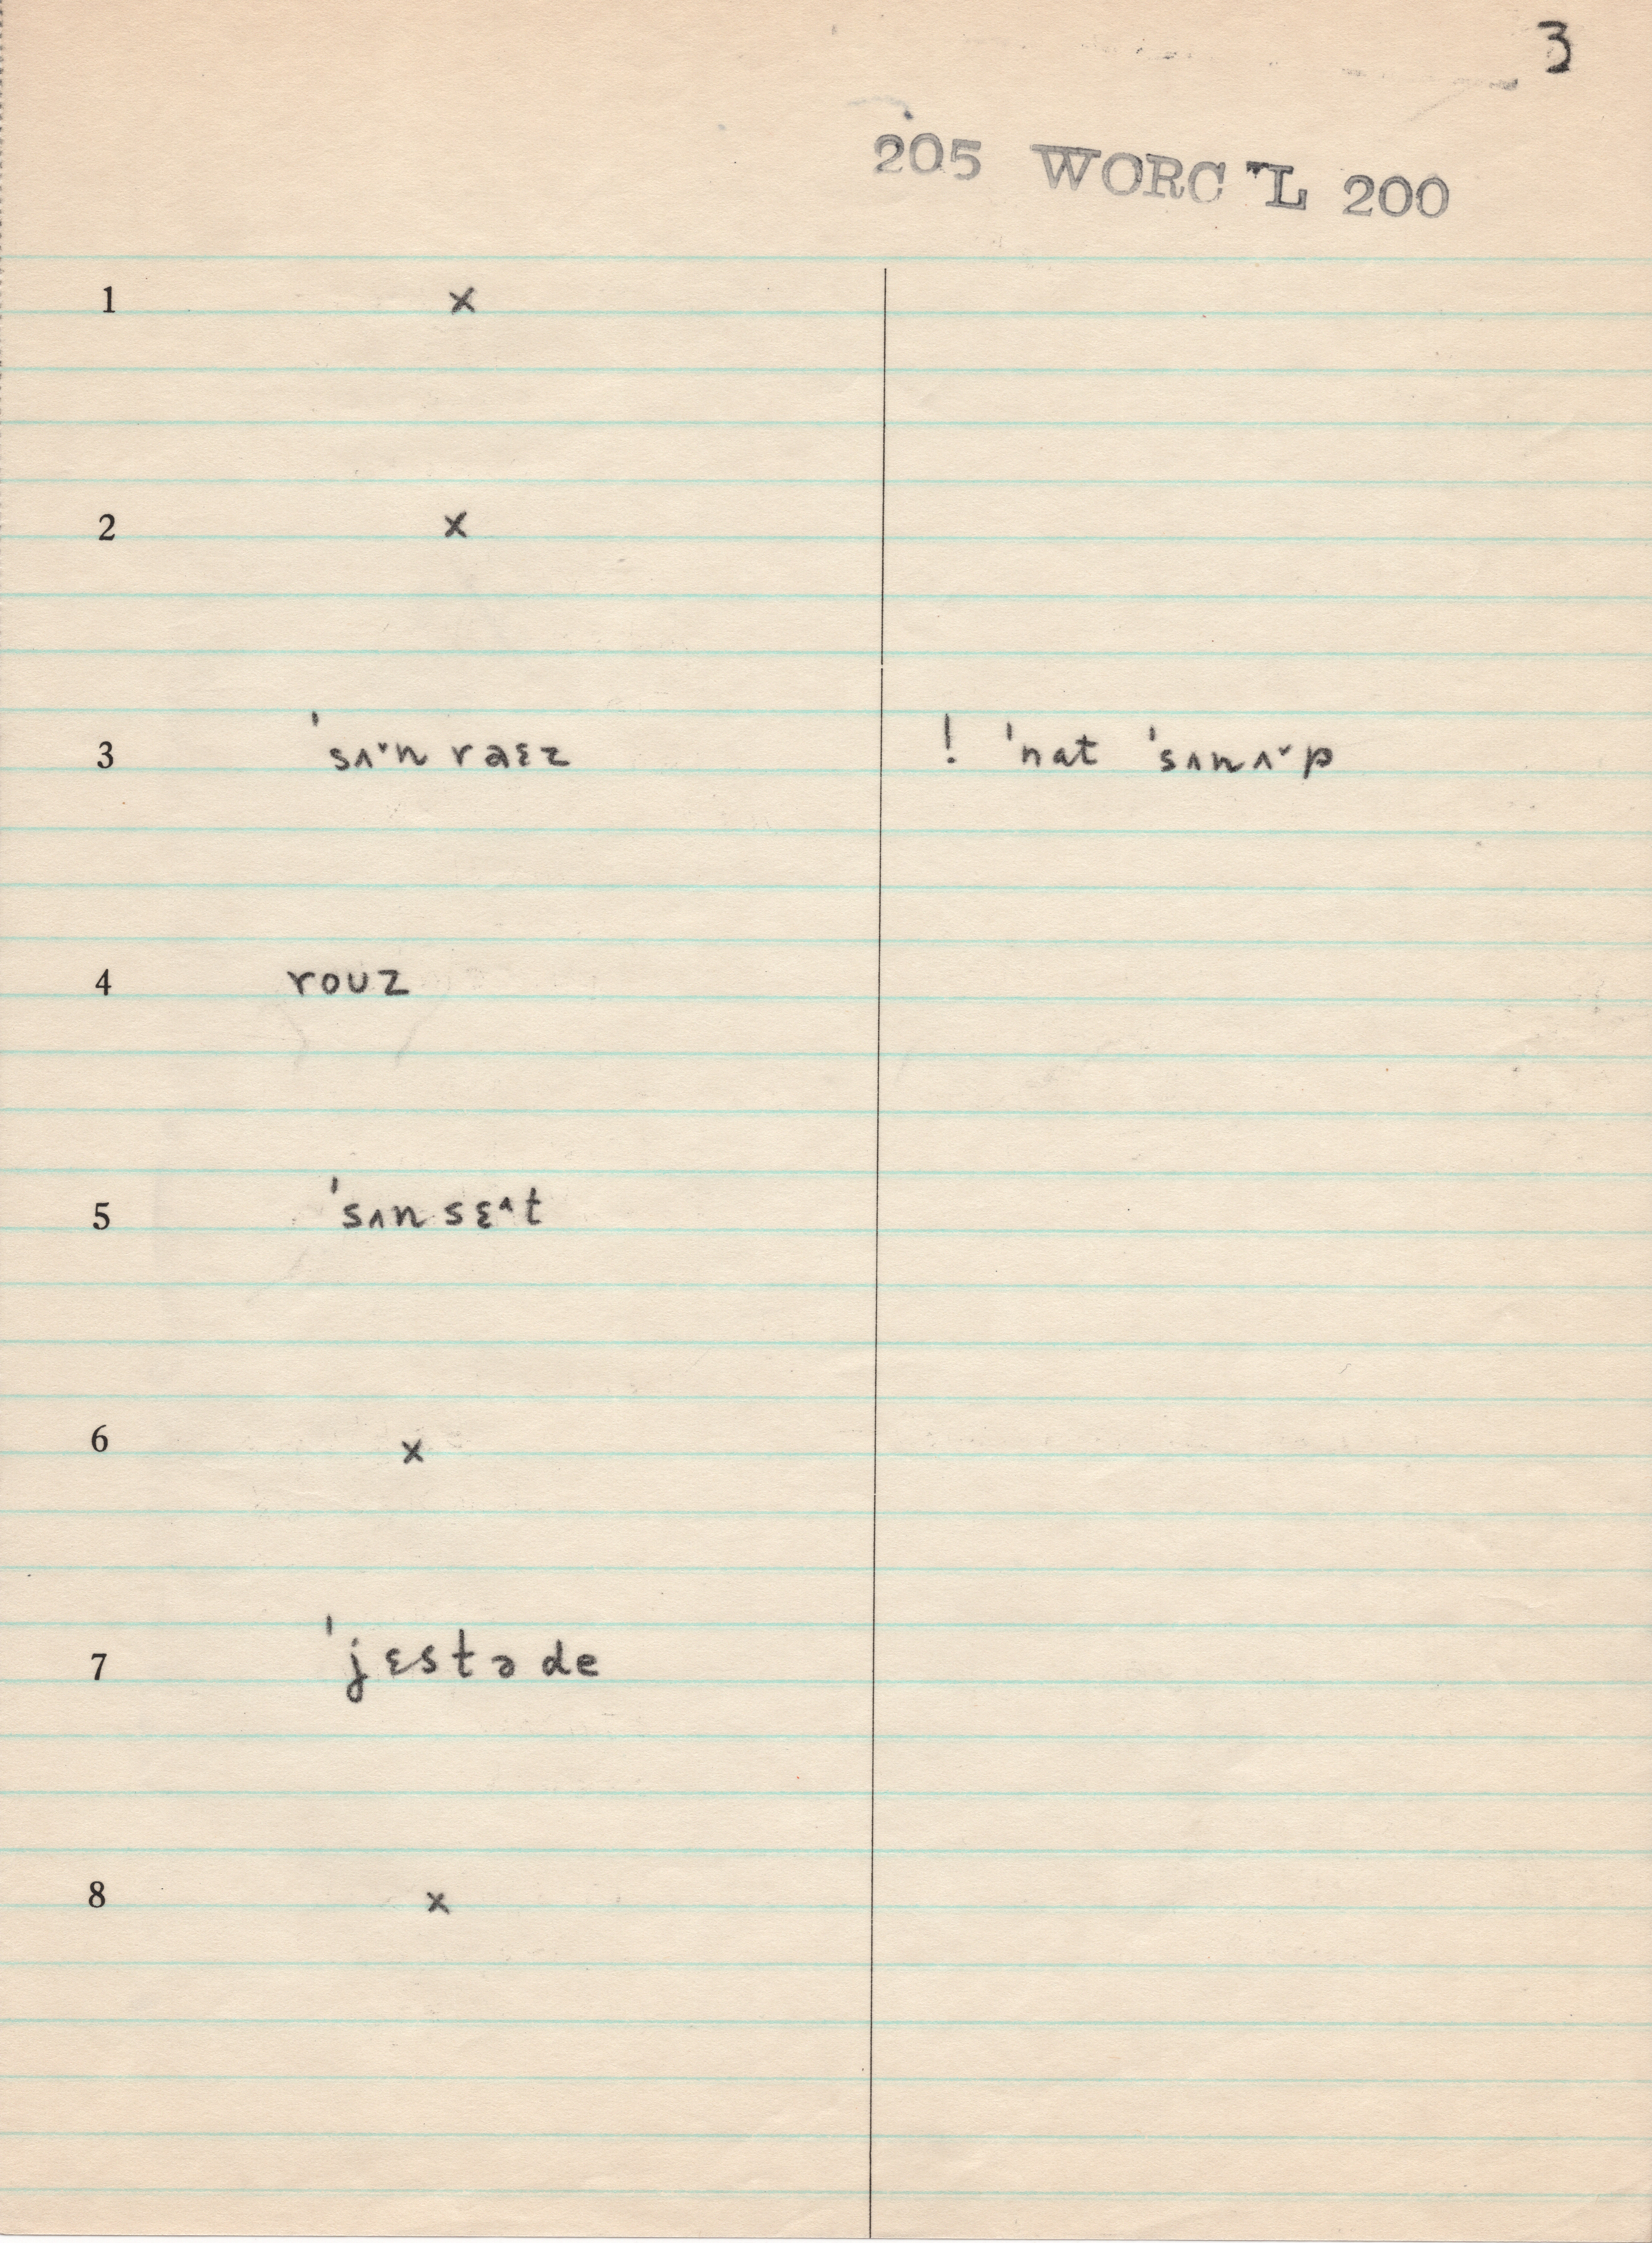 3
205 WORC L 200
1 x
2 x
3 ˈsʌ˅n raɛz ! ˈnat ˈsʌnʌ˅p
4 rouz
5 ˈsʌn sɛ˄t
6 x
7 ˈjɛstə de
8 x